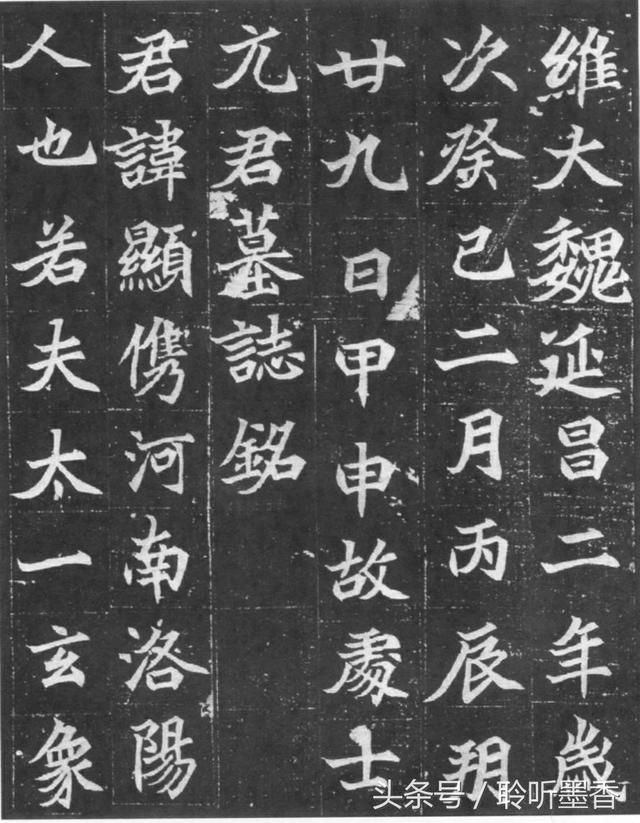 維大魏延昌二年歲
次癸巳二月丙辰朔
廿九日甲申故處士
元君墓誌銘
君諱顯儁河南洛陽
人也若夫太一玄象
头条号／聆听墨香